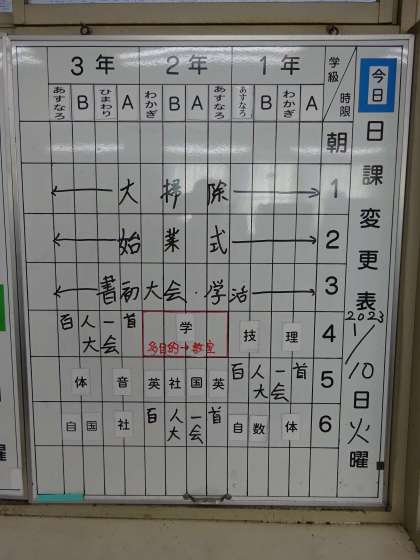 今日
日課変更表
2023
1/10日火曜
学級/時限
3年 2年 1年
あすなろ B ひまわり A わかぎ B A あすなろ あすなろ B わかぎ A
朝
大掃除 1
始業式 2
書初大会・学活 3
百人一首大会 学 技 理 4
多目的→教室
体 音 英 社 国 英 百人一首大会 5
自 国 社 百人一首大会 自 数 体 6